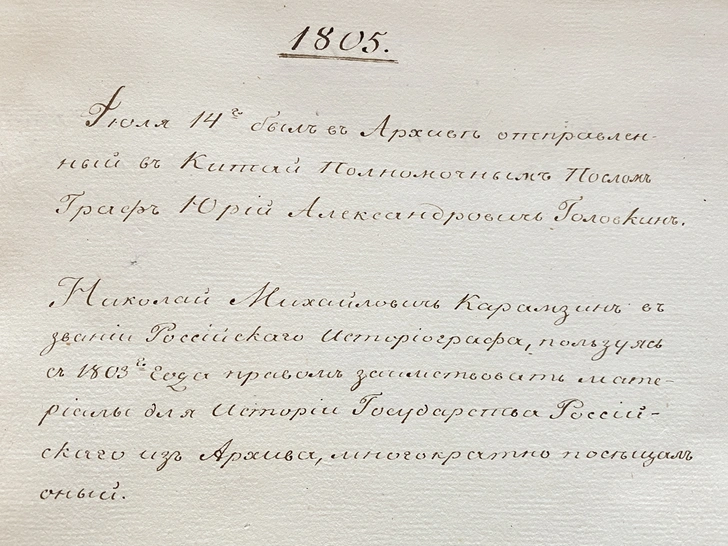 1805.
Іюля 14го былъ въ Архивѣ отправлен-
ный въ Китай Полномочнымъ Посломъ
Графъ Юрій Александровичь Головкинъ.
Николай Михайловичь Карамзинъ въ
званіи Россійскаго Исторіографа, пользуясь
съ 1803го года правомъ заимствовать мате-
ріалы для Исторіи Государства Россій-
скаго изъ Архива, многократно посѣщалъ
оный.